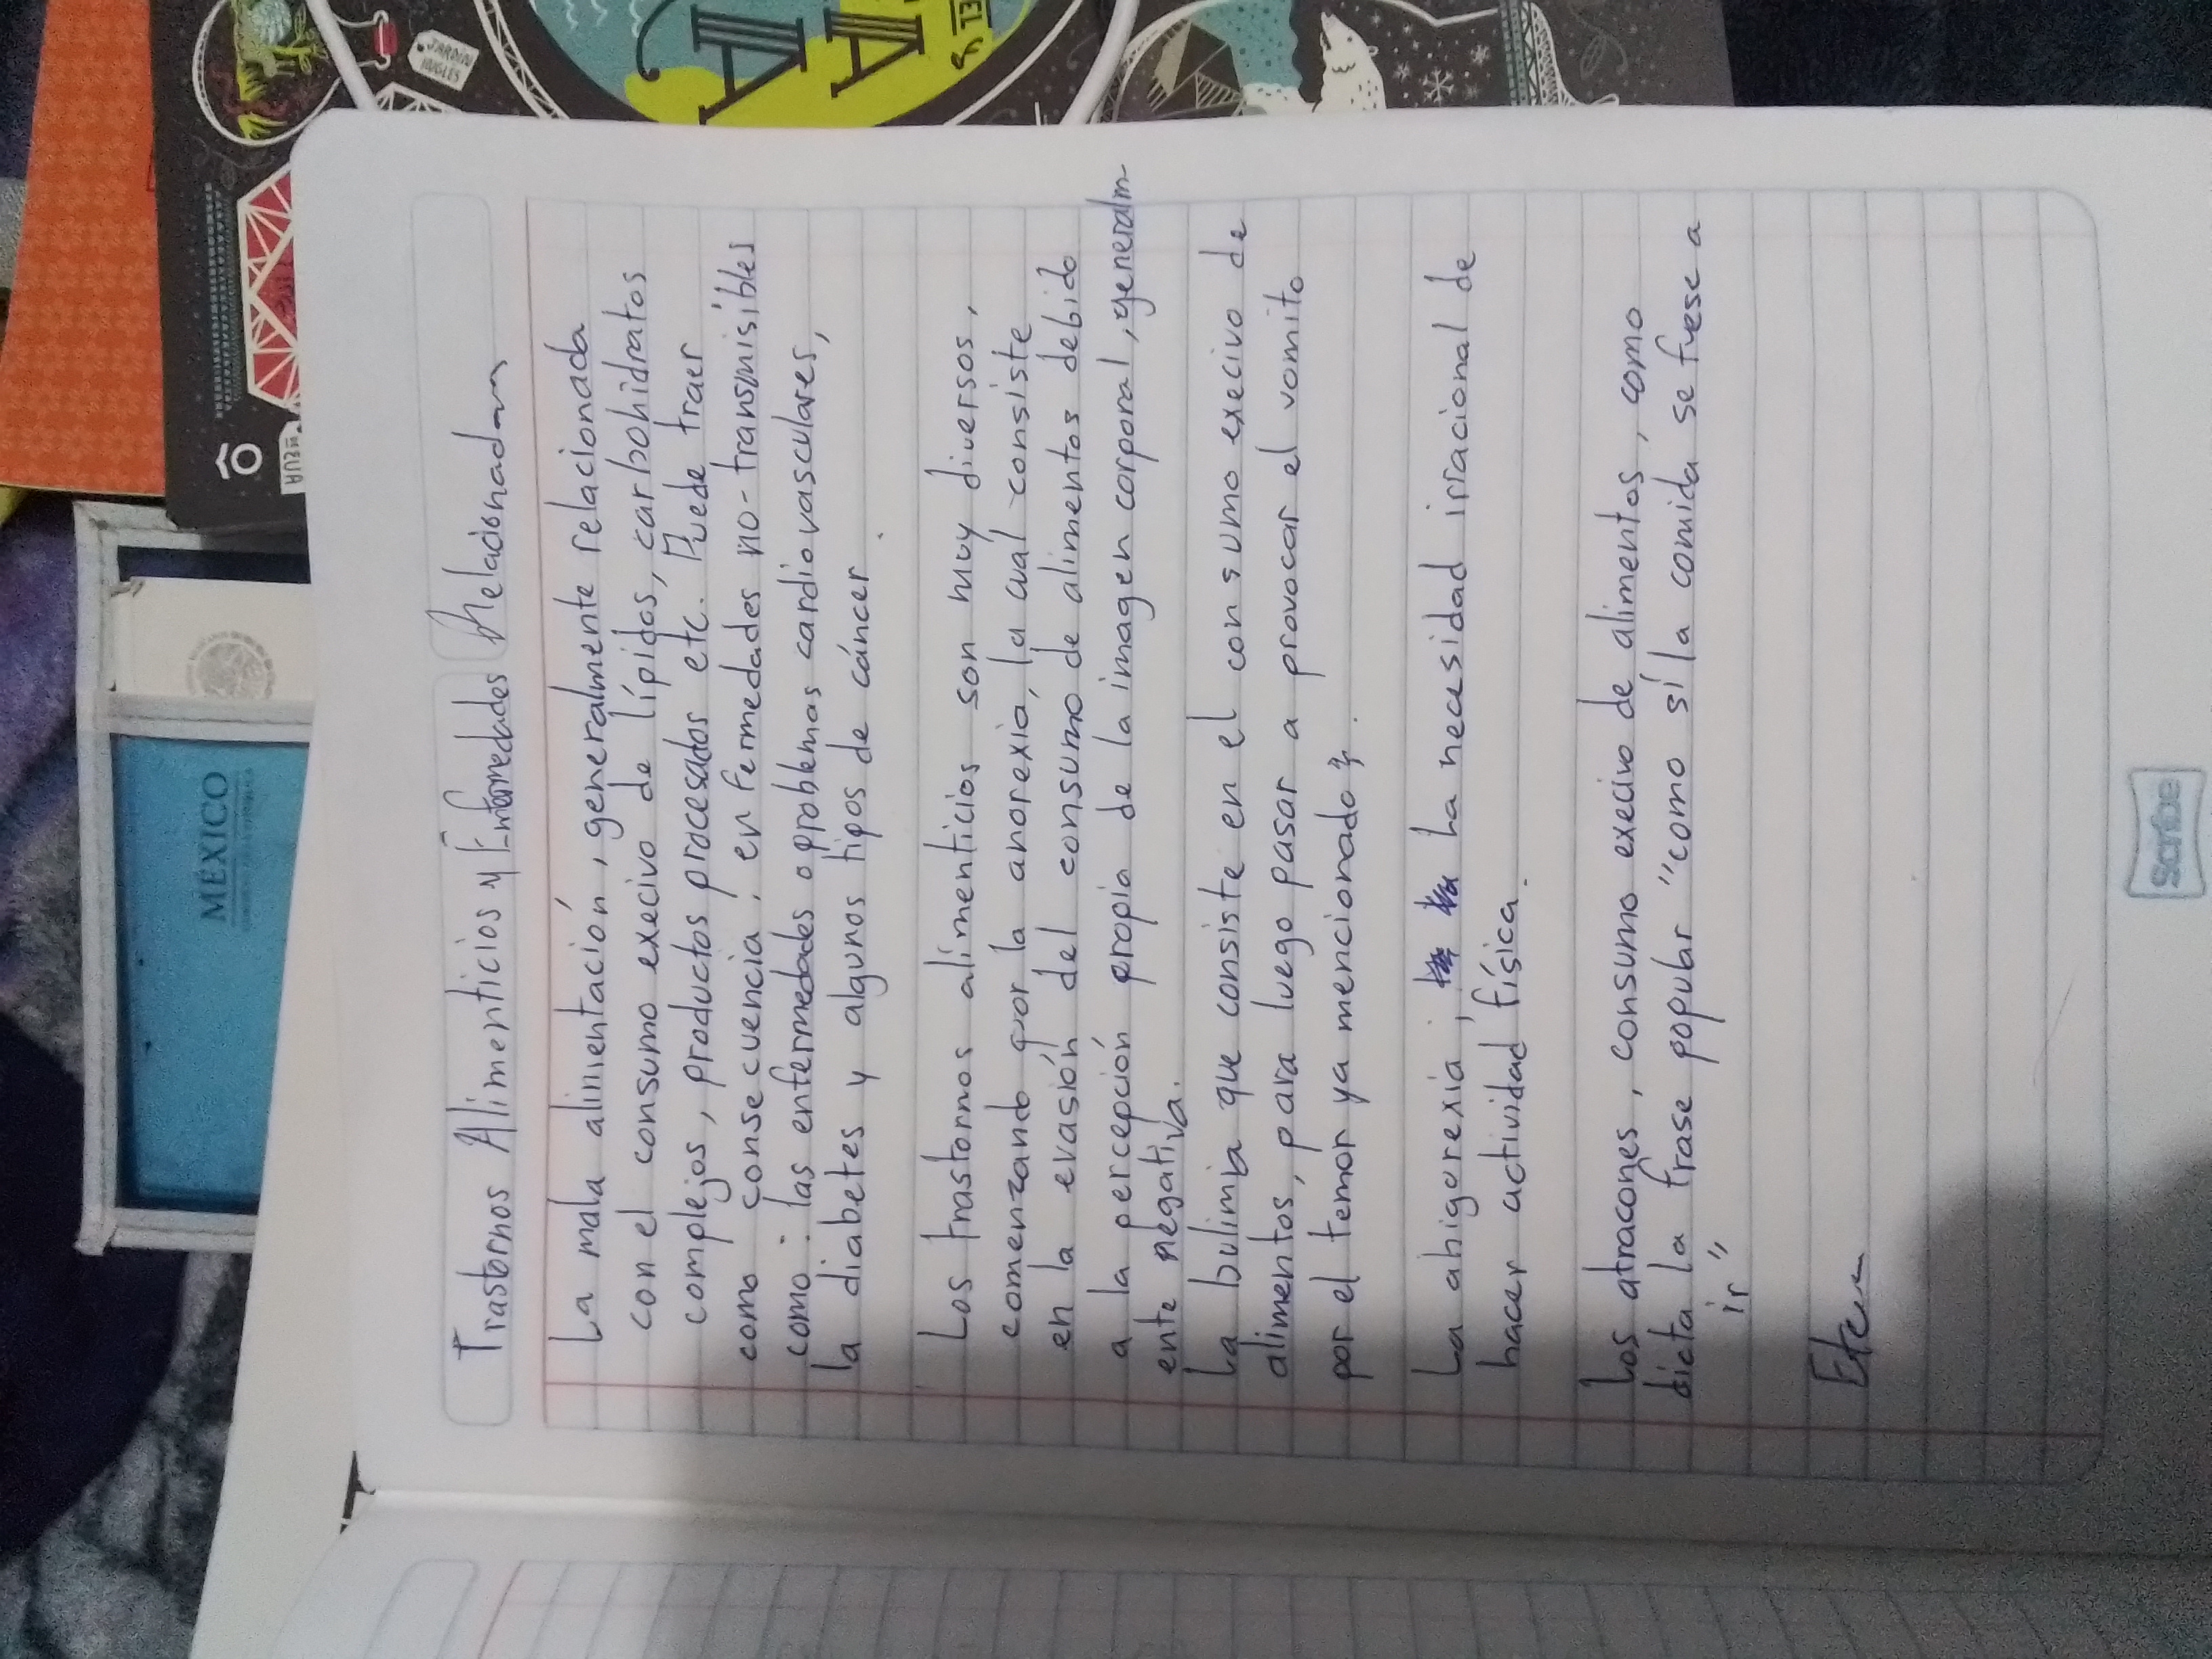 Trastornos Alimenticios y Enfermedades Relacionadas
La mala alimentación, generalmente relacionada
con el consumo execivo de lípidos, carbohidratos
complejos, productos procesados etc. Puede traer
como consecuencia; enfermedades no-transmisibles
como: las enfermedades o problemas cardiovasculares,
la diabetes y algunos tipos de cáncer.
Los trastornos alimenticios son muy diversos,
comenzando por la anorexia, la cual consiste
en la evasión del consumo de alimentos debido
a la percepción propia de la imagen corporal, generalm-
ente negativa.
La bulimia que consiste en el consumo execivo de
alimentos, para luego pasar a provocar el vomito
por el temor ya mencionado.
La ahigorexia; La necesidad irracional de
hacer actividad física.
Los atracones, consumo execivo de alimentos, como
dicta la frase popular "como sí la comida se fuese a
ir"
Etc
Scribe
MÉXICO
JARDÍN
INGLÉS
EL
A
A